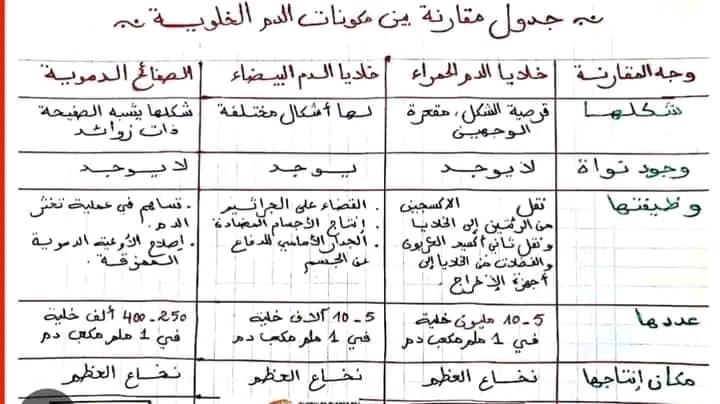 جدول مقارنة بين مكونات الدم الخلوية
وجه المقارنة
خلايا الدم الحمراء
خلايا الدم البيضاء
الصفائح الدموية
شكلها
قرصية الشكل، مقعرة
الوجهين
لها أشكال مختلفة
شكلها يشبه الصفيحة
ذات زوائد
وجود نواة
لا يوجد
يوجد
لا يوجد
وظيفتها
نقل الاكسجين
من الرئتين إلى الخلايا
ونقل ثاني أكسيد الكربون
والفضلات من الخلايا إلى
أجهزة الإخراج
. القضاء على الجراثيم
. إنتاج الأجسام المضادة
. الجدار الأساسي للدفاع
عن الجسم
. تساهم في عملية تخثر
الدم.
. إصلاح الأوعية الدموية
الممزقة
عددها
5 - 10 مليون خلية
في 1 ملم مكعب دم
5 - 10 آلاف خلية
في 1 ملم مكعب دم
250 - 400 ألف خلية
في 1 ملم مكعب دم
مكان إنتاجها
نخاع العظم
نخاع العظم
نخاع العظم